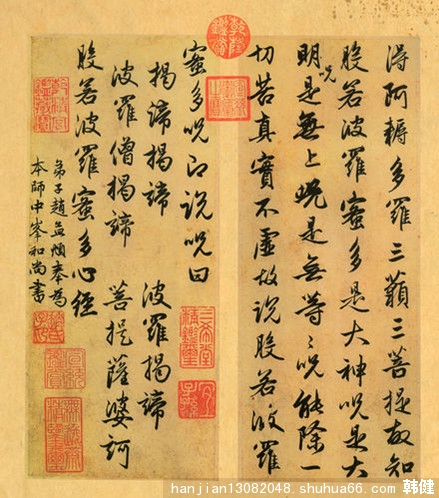 得阿耨多羅三藐三菩提故知
般若波羅蜜多是大神呪是大
明呪是無上呪是無等〻呪能除一
切苦真實不虛故說般若波羅
蜜多呪即說呪曰
揭諦揭諦 波羅揭諦
波羅僧揭諦 菩提薩婆訶
般若波羅蜜多心經
弟子趙孟頫奉為
本師中峯和尚書
乾隆鑑賞
三希堂精鑑璽
宜子孫
hanjian13082048. shuhua66.com 韩健